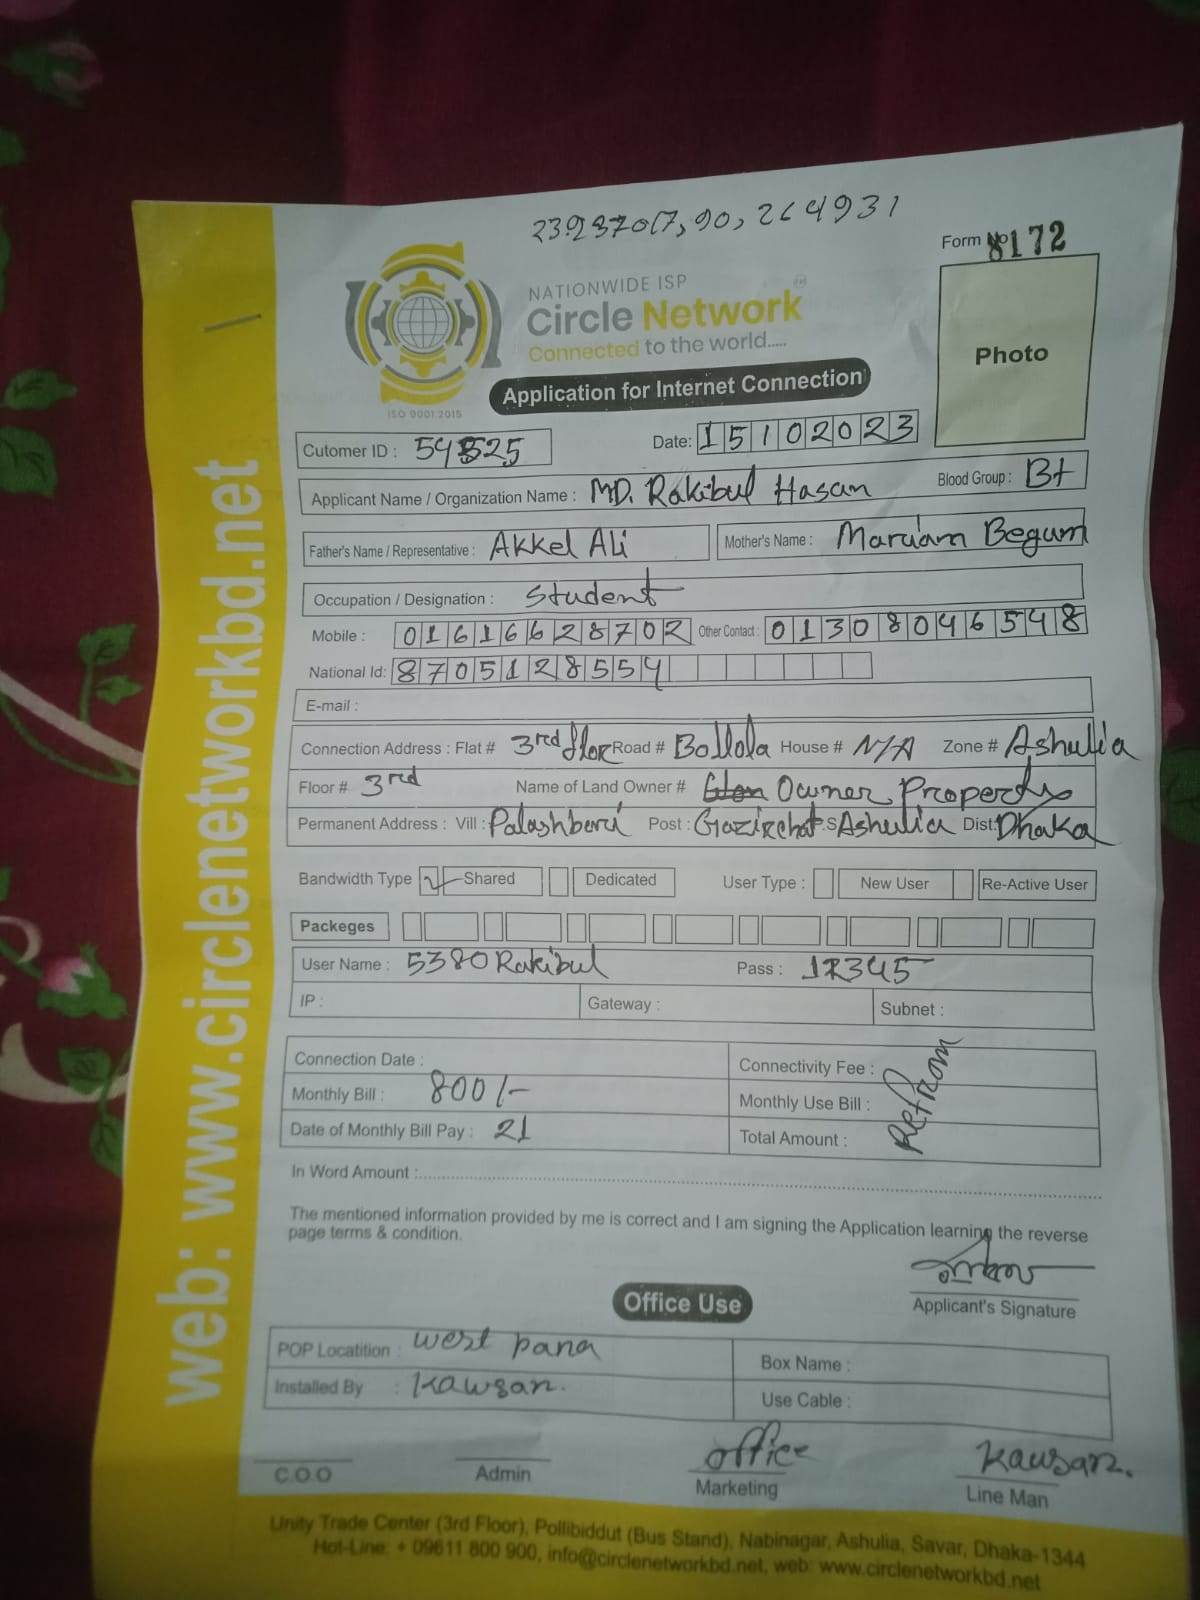 23.937017, 90, 264931
Form No 8172
NATIONWIDE ISP
Circle Network
Connected to the world.....
ISO 9001:2015
Photo
Application for Internet Connection
Cutomer ID : 54525 Date: 15102023
Applicant Name / Organization Name : MD. Rakibul Hasan Blood Group : B+
Father's Name / Representative : Akkel Ali Mother's Name : Mariam Begum
Occupation / Designation : Student
Mobile : 01616628702 Other Contact : 01308046548
National Id: 8705128554
E-mail :
Connection Address : Flat # 3red flor Road # Bollola House # N/A Zone # Ashulia
Floor # 3red Name of Land Owner # Owner Property
Permanent Address : Vill : Palashbari Post : Gazirchat P.S Ashulia Dist: Dhaka
Bandwidth Type Shared Dedicated User Type : New User Re-Active User
Packeges
User Name : 5380Rakibul Pass : 12345
IP : Gateway : Subnet :
Connection Date : Connectivity Fee :
Monthly Bill : 800/- Monthly Use Bill :
Date of Monthly Bill Pay : 21 Total Amount :
In Word Amount :
The mentioned information provided by me is correct and I am signing the Application learning the reverse
page terms & condition.
Applicant's Signature
Office Use
POP Locatition : west para Box Name :
Installed By : Kawsar. Use Cable :
office Kawsar.
C.O.O Admin Marketing Line Man
Unity Trade Center (3rd Floor), Pollibiddut (Bus Stand), Nabinagar, Ashulia, Savar, Dhaka-1344
Hot-Line: + 09611 800 900, info@circlenetworkbd.net, web: www.circlenetworkbd.net
web: www.circlenetworkbd.net